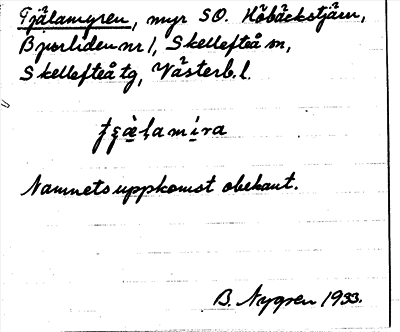 Tjälamyren, myr SO. Höbäckstjärn,
Bjurliden nr 1, Skellefteå sn,
Skellefteå tg, Västerb. l.
Namnets uppkomst obekant.
B. Nygren 1933.